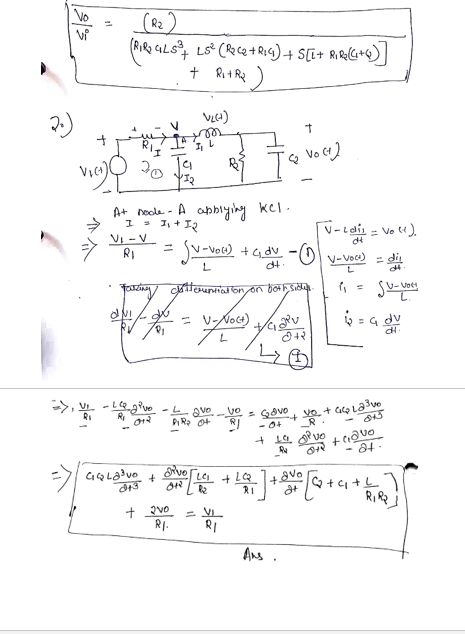 Vo/Vi = (R2) / (R1R2 C1LS³ + LS²(R2C2+R1C1) + S[L+ R1R2(C1+C2)] + R1+R2)
2.)
+ + - V VL(t) +
R1 I A I1 L
V1(t) C1 I2 R2 C2 Vo(t)
- -
At node-A applying KCL.
⇒ I = I1 + I2
⇒ (V1 - V)/R1 = ∫(V-Vo(t))/L + C1 dV/dt. - ①
V - L di1/dt = Vo(t)
(V-Vo(t))/L = di1/dt.
i1 = ∫(V-Vo(t))/L.
i2 = C1 dV/dt.
Taking differentiation on both sides
dV1/R1 - dV/R1 = (V-Vo(t))/L + C1 ∂²V/∂t²
↳ Ⓘ
⇒ V1/R1 - LC2/R1 ∂²Vo/∂t² - L/R1R2 ∂Vo/∂t - Vo/R1 = C2∂Vo/∂t + Vo/R + C1C2L∂³Vo/∂t³
+ LC1/R2 ∂²Vo/∂t² + C1∂Vo/∂t.
⇒ C1C2L∂³Vo/∂t³ + ∂²Vo/∂t² [LC1/R2 + LC2/R1] + ∂Vo/∂t [C2 + C1 + L/R1R2]
+ 2Vo/R1. = V1/R1
Ans.